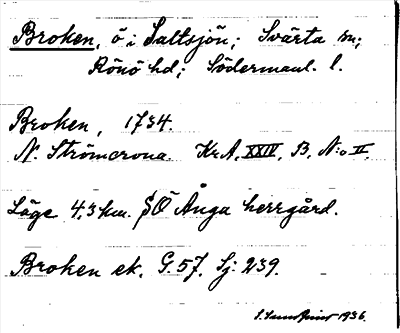 Broken, ö i Saltsjön; Svärta sn;
Rönö hd; Södermanl. l.
Broken, 1734.
N. Strömcrona KrA. XXIV, B, N:o II.
Läge 4,3 km. SÖ Ånga herrgård.
Broken ek. G. 57. Sj: 239.
1936.